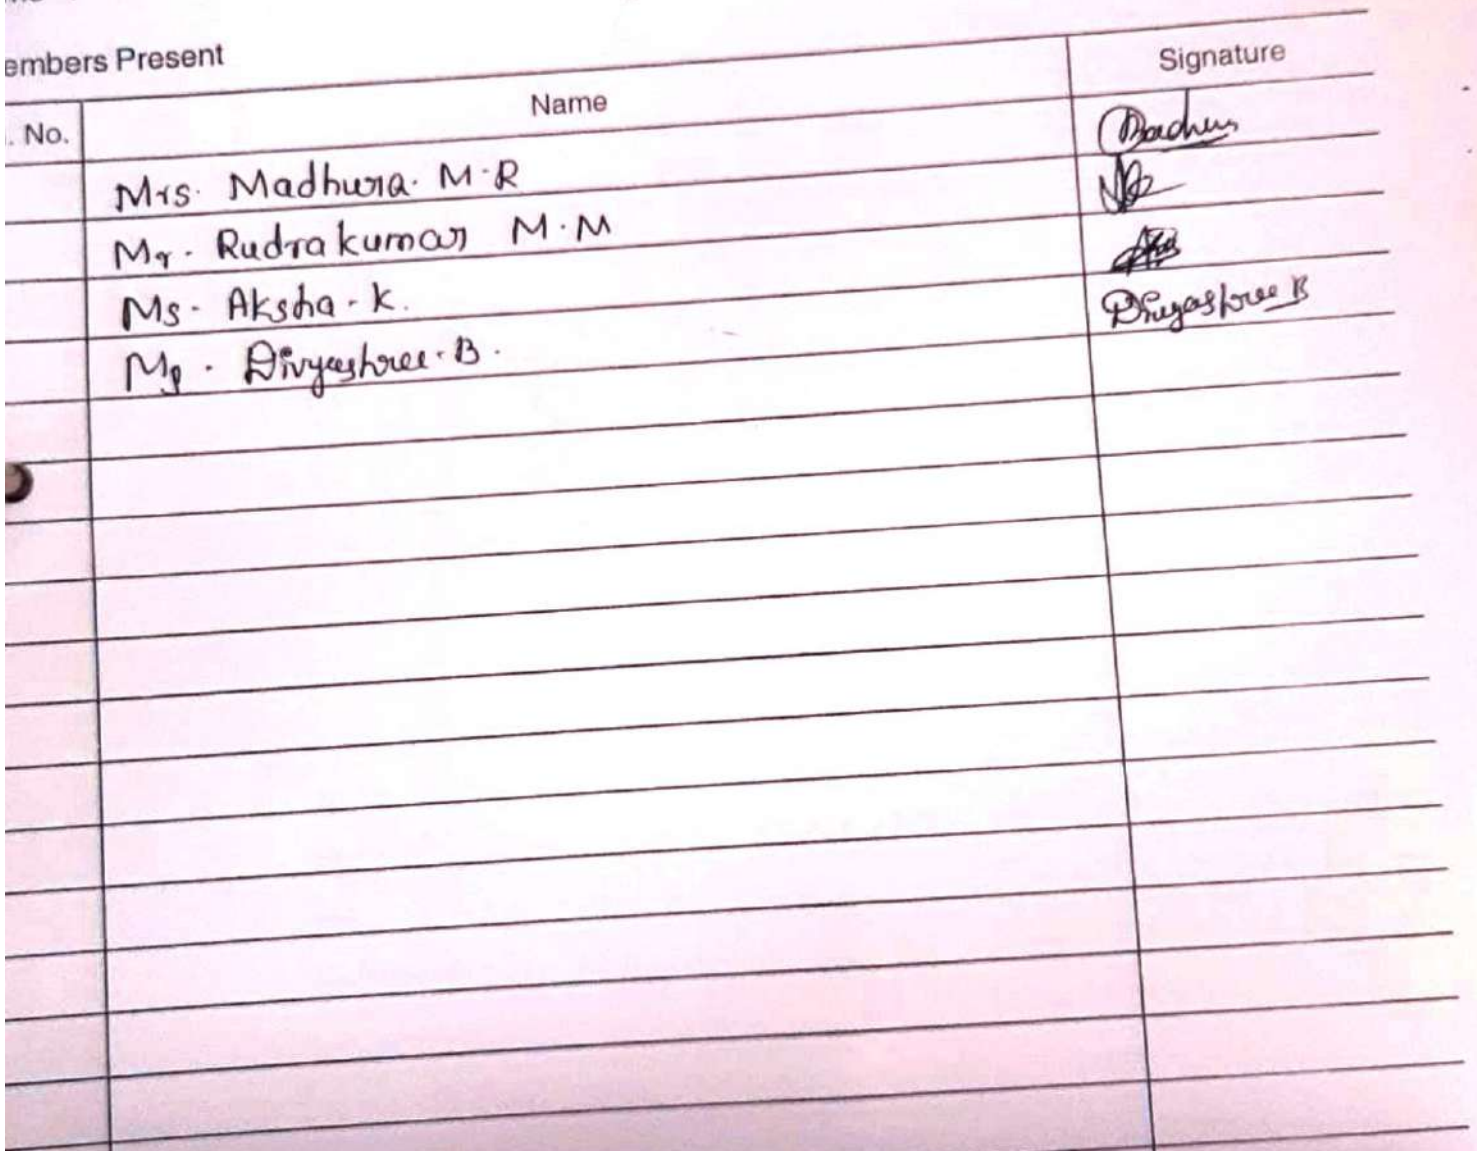 embers Present
. No. Name Signature
Mrs. Madhura. M.R
Mr. Rudrakumar M.M
Ms. Aksha. K.
Ms. Divyashree. B. Divyashree B